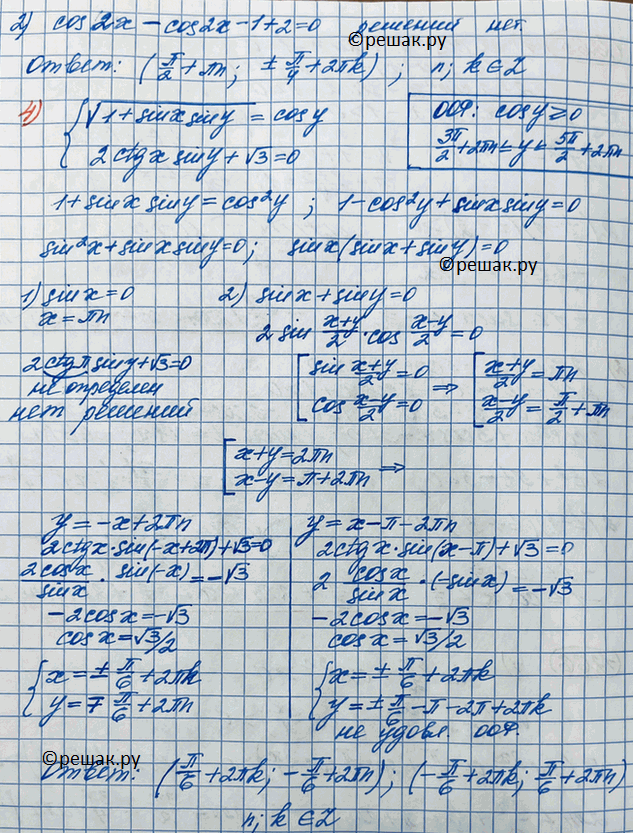 2) cos2x - cos2x - 1 + 2 = 0 решений нет.
©решак.ру
Ответ: (π/2 + πn; ± π/4 + 2πk); n; k ∈ Z
4) { √(1 + sinx siny) = cosy
2ctgx siny + √3 = 0
ООФ: cosy ≥ 0
3π/2 + 2πn ≤ y ≤ 5π/2 + 2πn
1 + sinx siny = cos²y ; 1 - cos²y + sinx siny = 0
sin²x + sinx siny = 0; sinx(sinx + siny) = 0
©решак.ру
1) sinx = 0
x = πn
2ctgπ siny + √3 = 0
не определен
нет решений
2) sinx + siny = 0
2 sin (x+y)/2 · cos (x-y)/2 = 0
[ sin (x+y)/2 = 0
cos (x-y)/2 = 0 ⇒ [ (x+y)/2 = πn
(x-y)/2 = π/2 + πn
[ x+y = 2πn
x-y = π + 2πn ⇒
y = -x + 2πn
2ctgx · sin(-x + 2π) + √3 = 0
2cosx/sinx · sin(-x) = -√3
-2cosx = -√3
cosx = √3/2
{ x = ± π/6 + 2πk
y = ∓ π/6 + 2πn
y = x - π - 2πn
2ctgx · sin(x - π) + √3 = 0
2 cosx/sinx · (-sinx) = -√3
-2cosx = -√3
cosx = √3/2
{ x = ± π/6 + 2πk
y = ± π/6 - π - 2π + 2πk
не удовл. ООФ.
©решак.ру
Ответ: (π/6 + 2πk; -π/6 + 2πn); (-π/6 + 2πk; π/6 + 2πn)
n; k ∈ Z